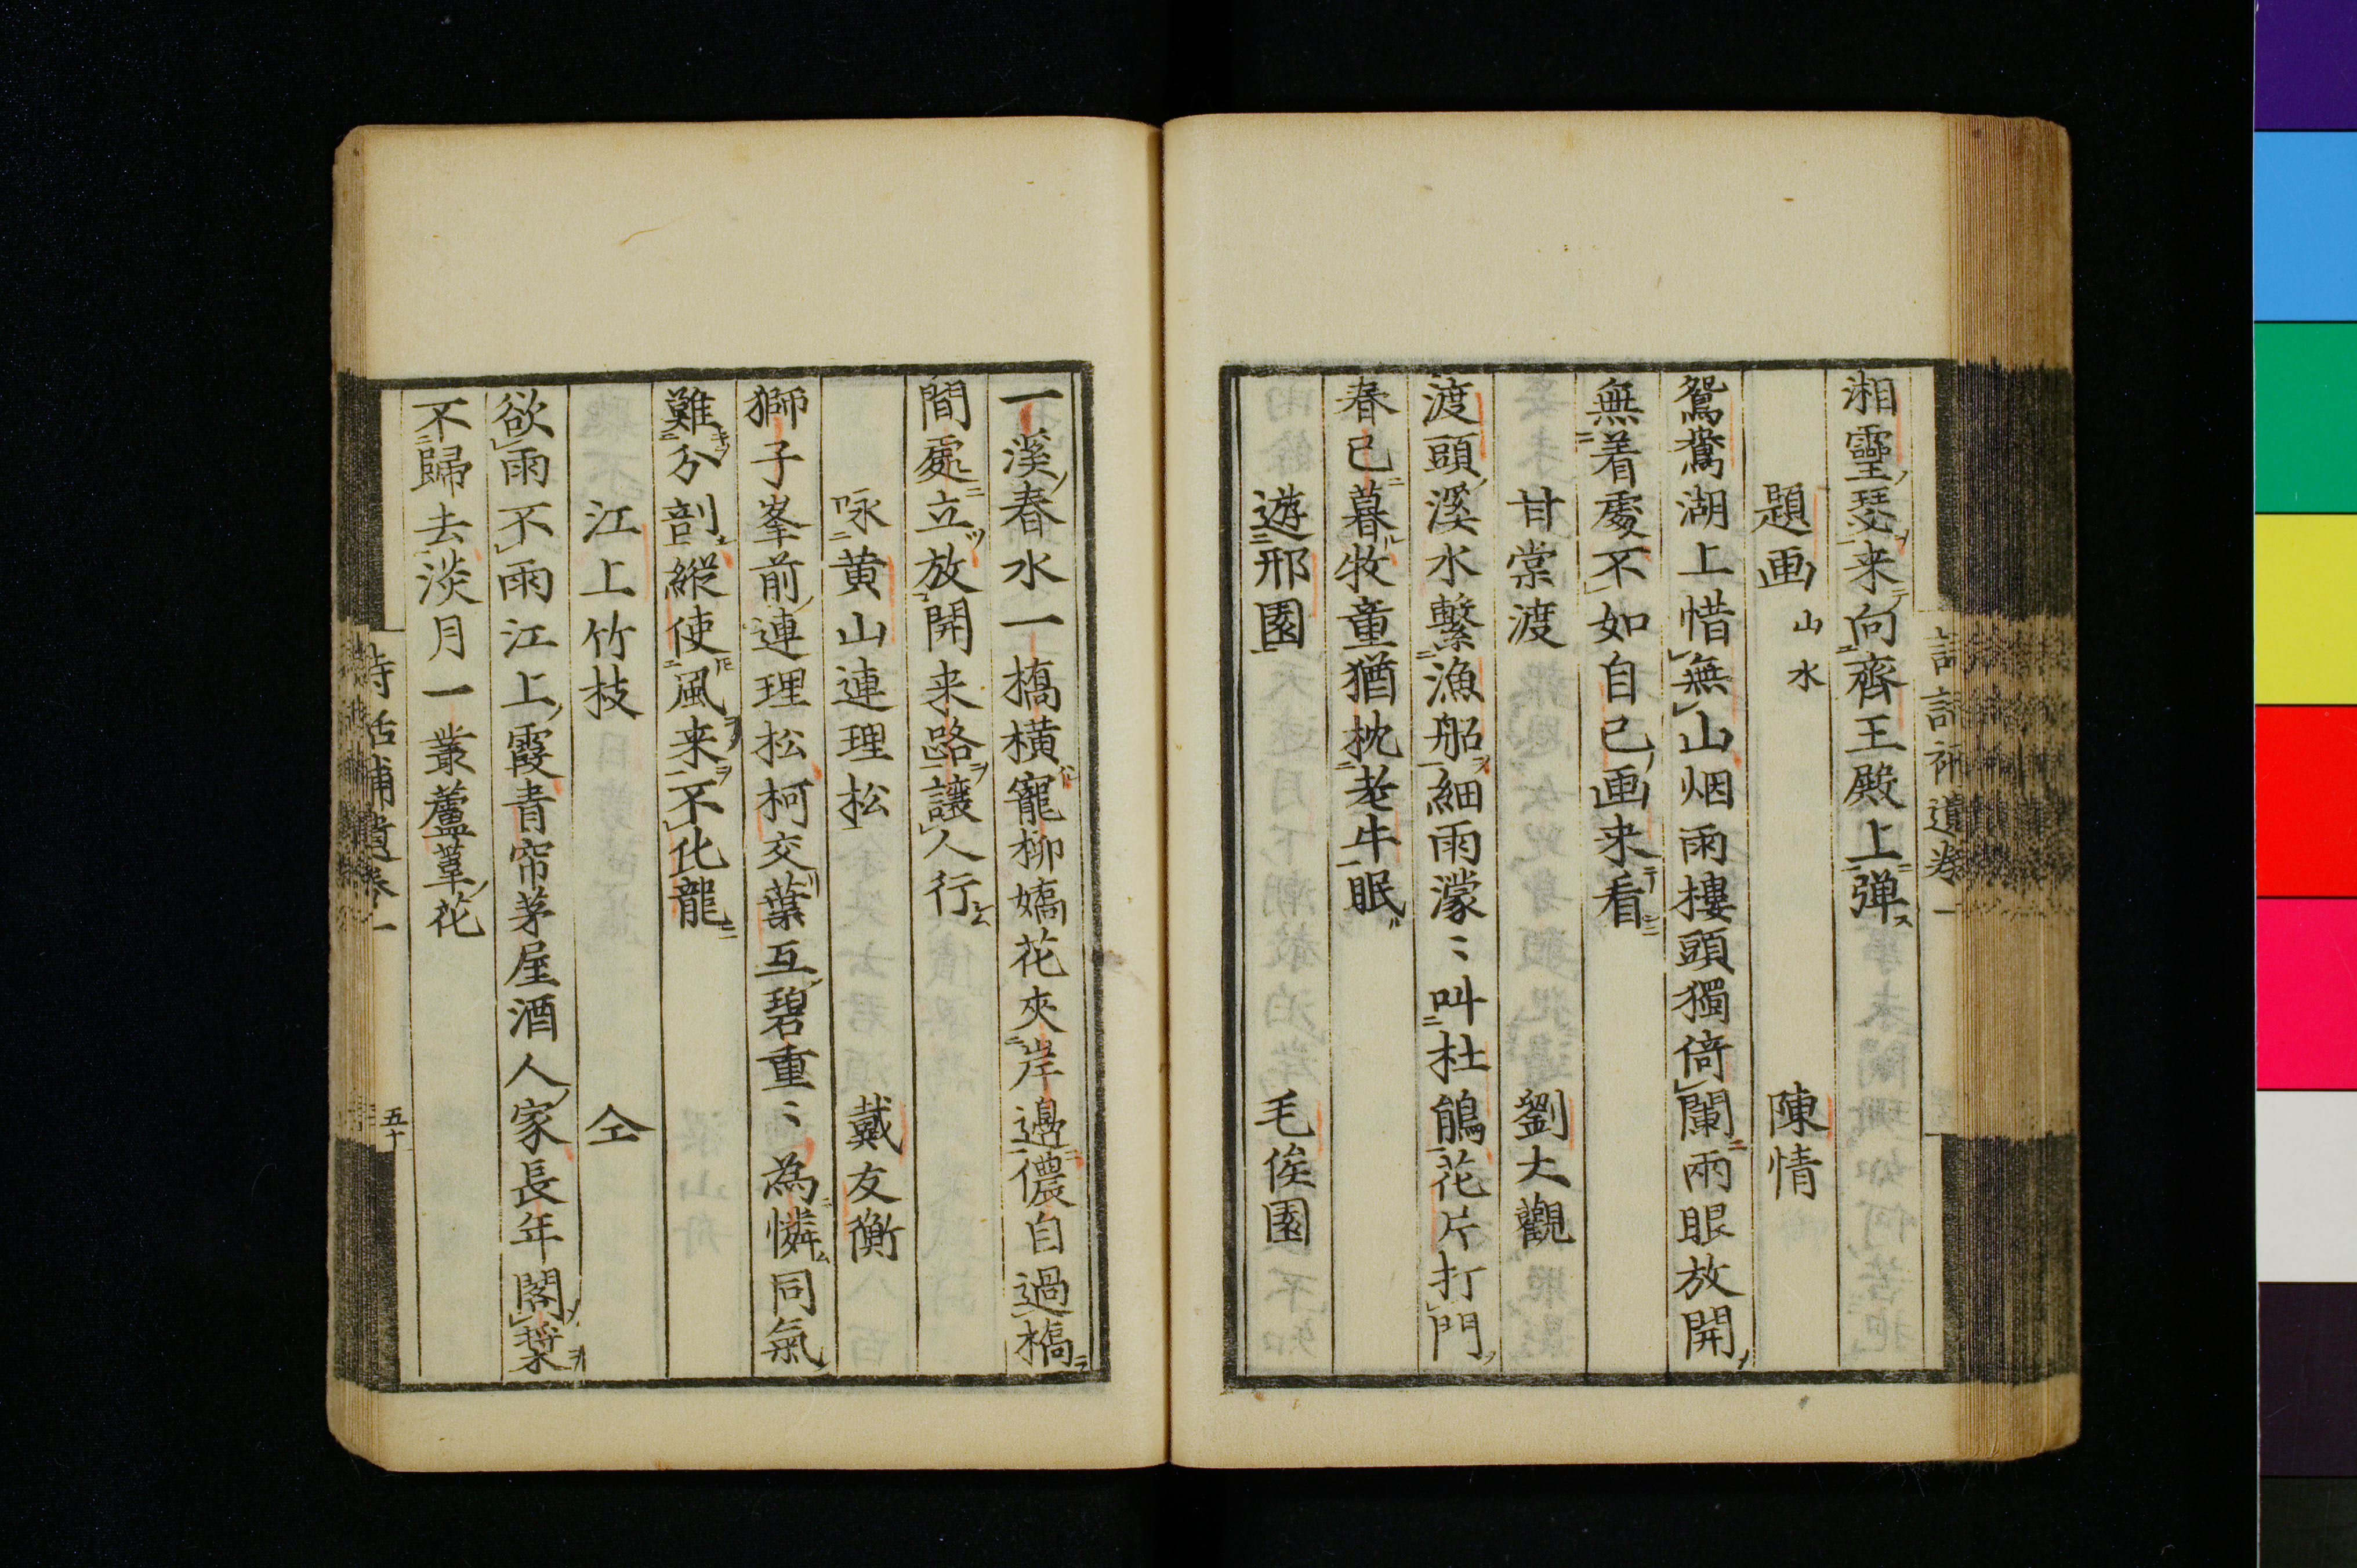 湘靈瑟来向齊王殿上弾
題画山水 陳情
鴛鴦湖上惜無山烟雨摟頭獨倚闌兩眼放開
無着處不如自己画来看
甘棠渡 劉大觀
渡頭溪水繫漁船細雨濛〻叫杜鵑花片打門
春已暮牧童猶枕老牛眠
遊邢園 毛俟園
一溪春水一橋横寵柳嬌花夾岸邉儂自過橋
間處立放開来路讓人行
咏黄山連理松 戴友衡
獅子峯前連理松柯交葉互碧重〻為憐同氣
難分剖縦使風来不化龍
江上竹枝 仝
欲雨不雨江上霞青帘茅屋酒人家長年閣槳
不歸去淡月一叢蘆葦花
詩話補遺卷一
五十